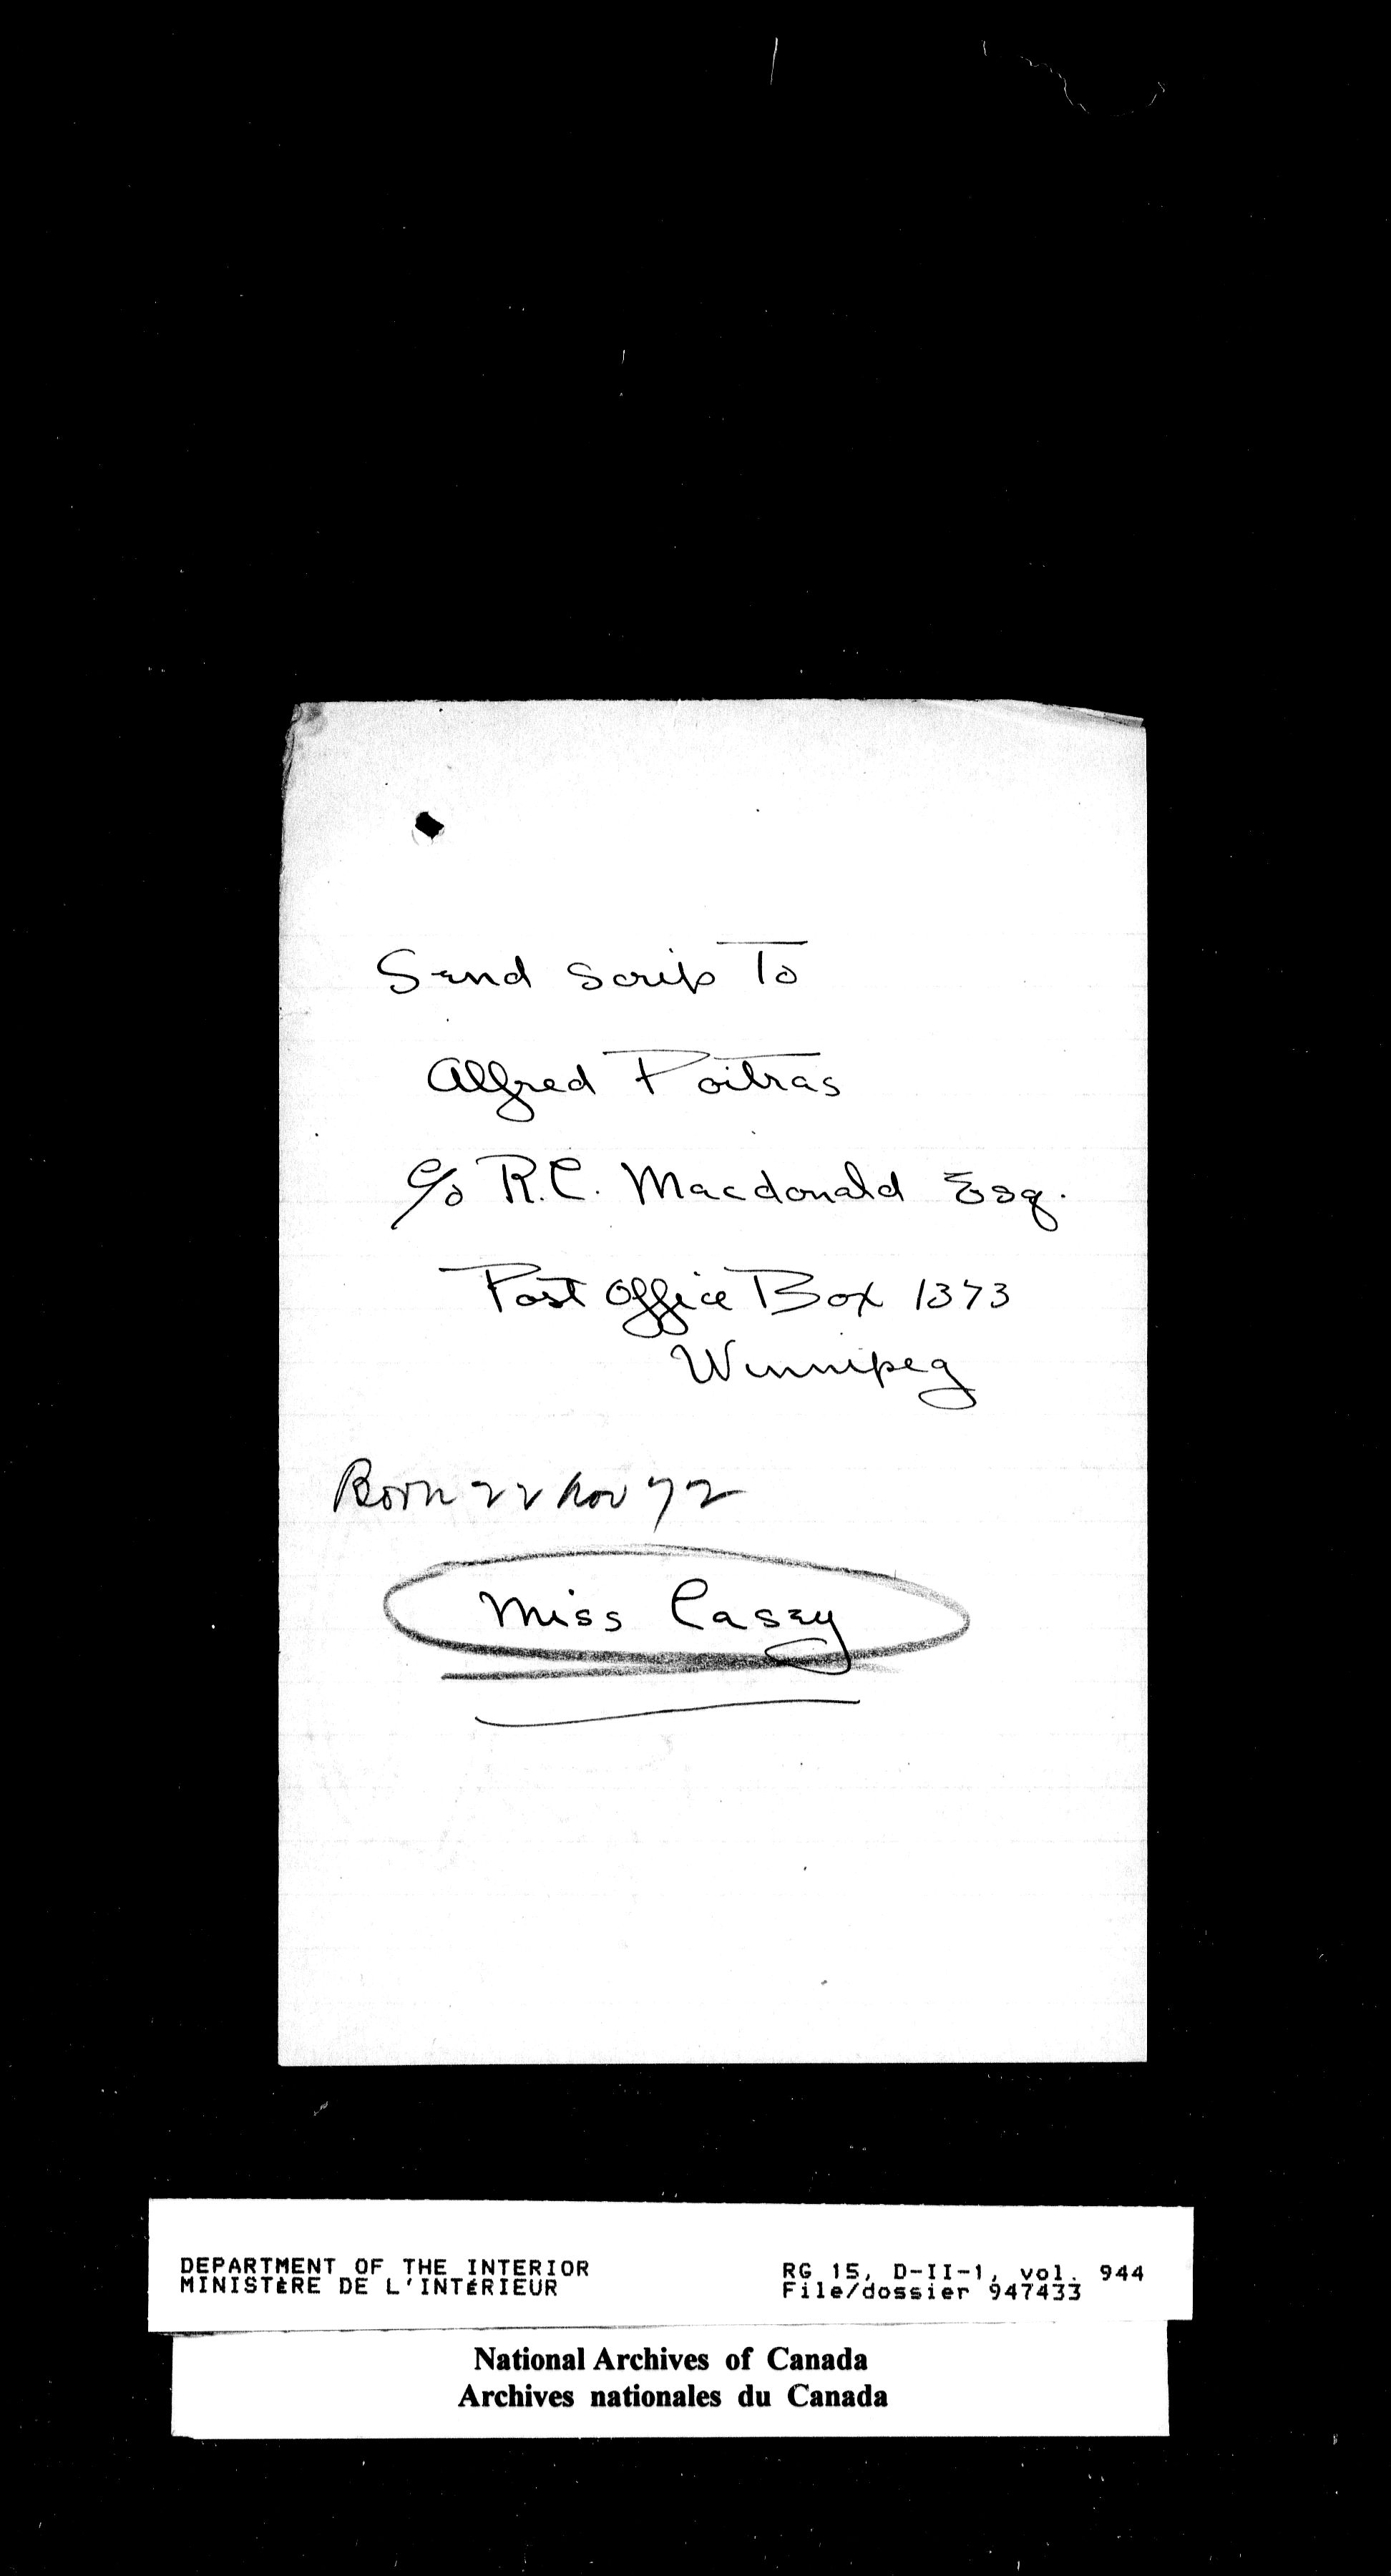 Send Scrip To
Alfred Poitras
c/o R.C. Macdonald Esq.
Post Office Box 1373
Winnipeg
Born 22 Nov 72
Miss Casey
DEPARTMENT OF THE INTERIOR
MINISTÈRE DE L'INTÉRIEUR
RG 15, D-II-1, vol. 944
File/dossier 947433
National Archives of Canada
Archives nationales du Canada